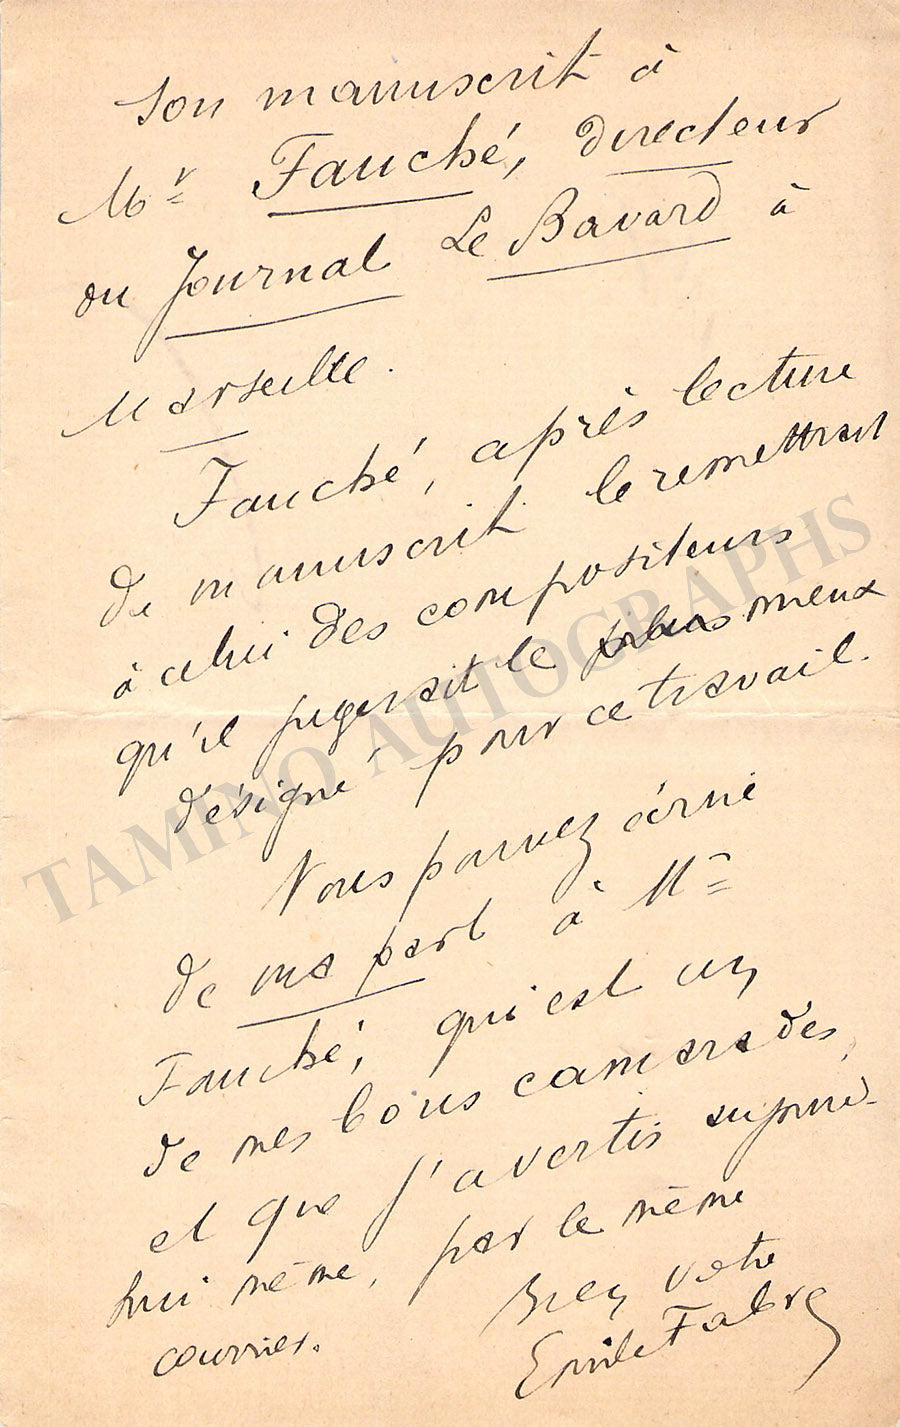 son manuscrit à
Mr Fauché, directeur
du Journal Le Bavard à
Marseille.
Fauché, après lecture
du manuscrit le remettrait
à celui des compositeurs
qu'il jugerait le mieux
désigné pour ce travail.
Vous pouvez écrire
de ma part à Mr
Fauché, qui est un
de mes bons camarades,
et que j'avertis aujourd'-
hui même, par le même
courrier.
Bien votre
Emile Fabre
TAMINO AUTOGRAPHS